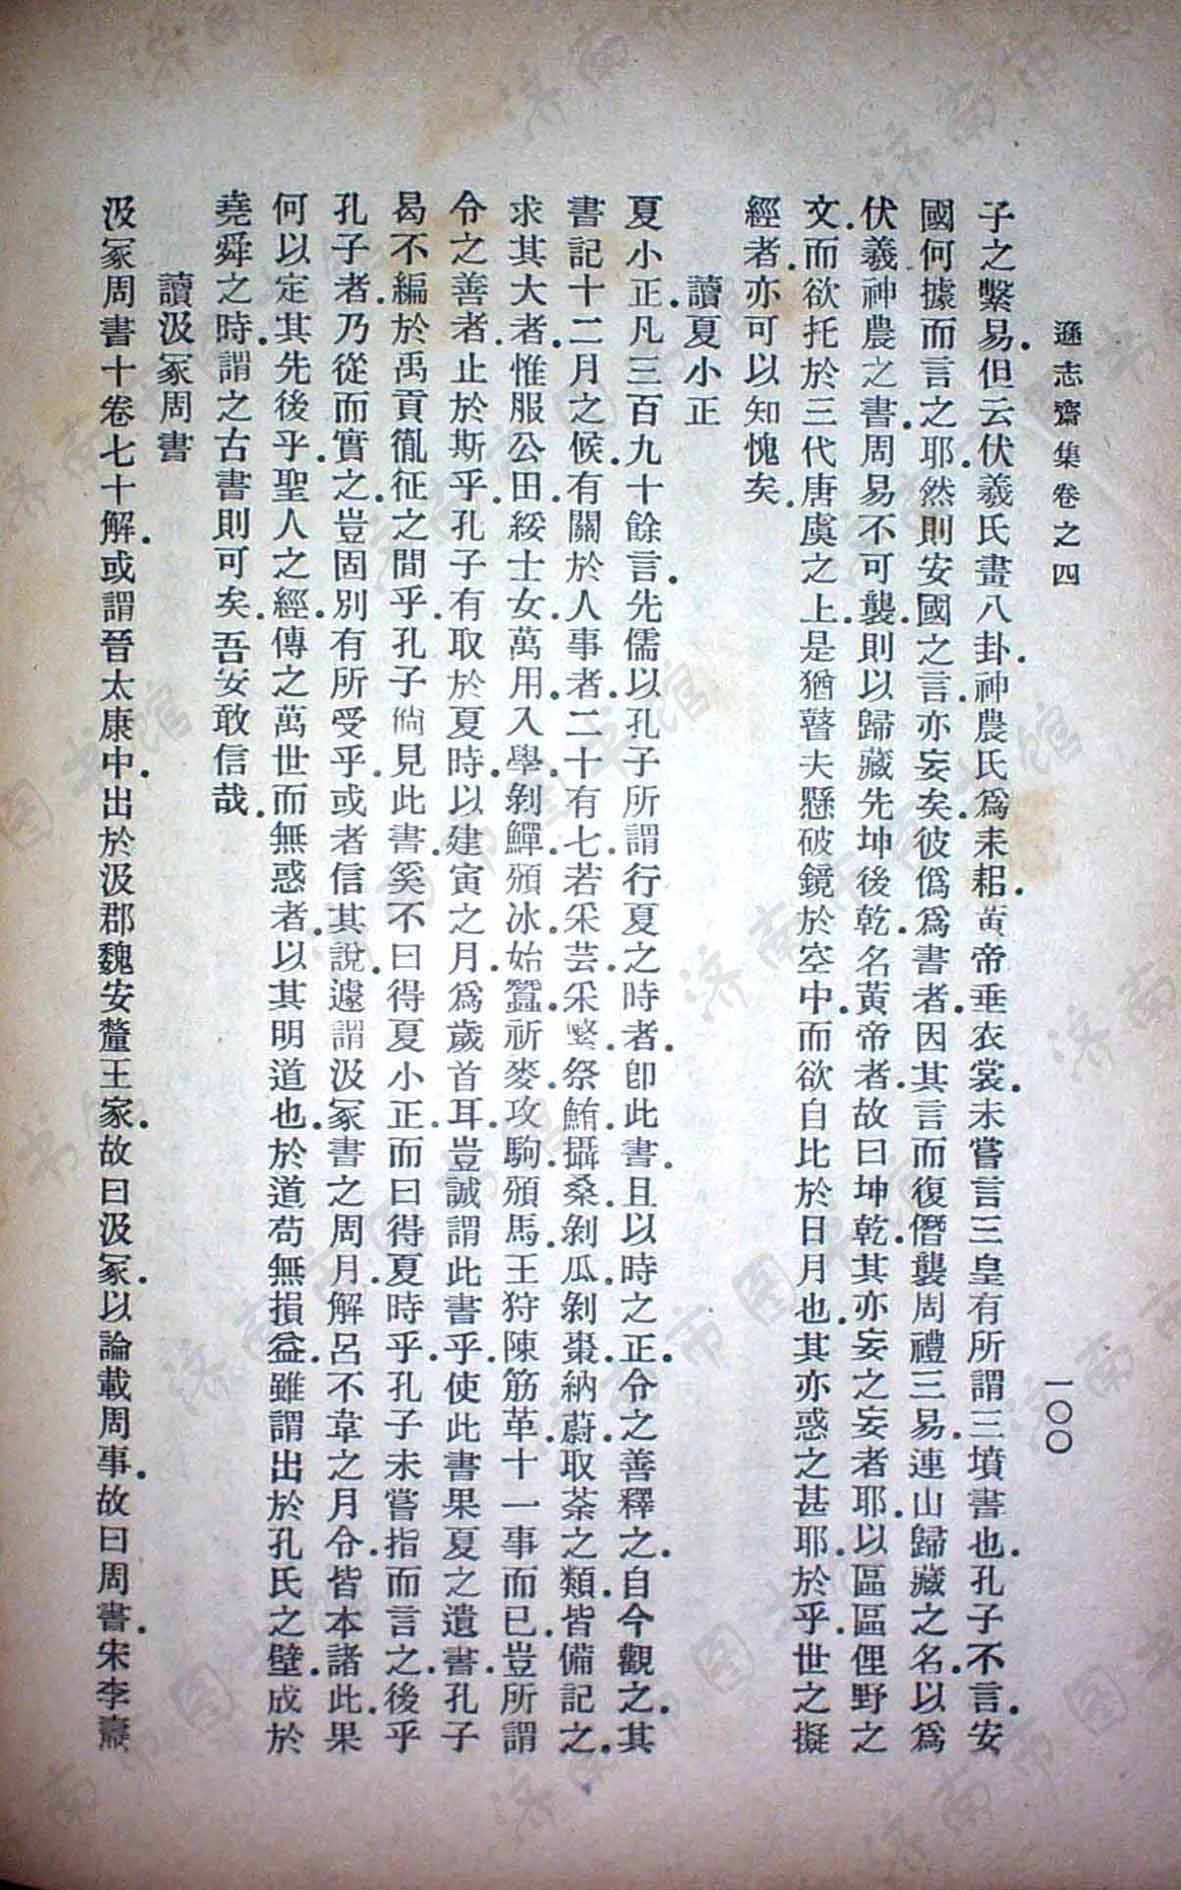 遜志齋集卷之四
一〇〇
子之繫易.但云伏羲氏畫八卦.神農氏爲耒耜.黃帝垂衣裳.未嘗言三皇有所謂三墳書也.孔子不言.安
國何據而言之耶.然則安國之言.亦妄矣.彼僞爲書者.因其言而復僭襲周禮三易.連山歸藏之名.以爲
伏羲神農之書.周易不可襲.則以歸藏先坤後乾.名黃帝者.故曰坤乾.其亦妄之妄者耶.以區區俚野之
文.而欲托於三代唐虞之上.是猶瞽夫懸破鏡於空中.而欲自比於日月也.其亦惑之甚耶.於乎.世之擬
經者.亦可以知愧矣.
讀夏小正
夏小正.凡三百九十餘言.先儒以孔子所謂行夏之時者.卽此書.且以時之正.令之善釋之.自今觀之.其
書記十二月之候.有關於人事者.二十有七.若采芸.采蘩.祭鮪.攝桑.剝瓜.剝棗.納蔚.取荼之類.皆備記之.
求其大者.惟服公田.綏士女.萬用.入學.剝鱓.頒冰.始蠶.祈麥.攻駒.頒馬.王狩.陳筋革.十一事而已.豈所謂
令之善者.止於斯乎.孔子有取於夏時.以建寅之月.爲歲首耳.豈誠謂此書乎.使此書果夏之遺書.孔子
曷不編於禹貢.胤征之間乎.孔子倘見此書.奚不曰得夏小正.而曰得夏時乎.孔子未嘗指而言之.後乎
孔子者.乃從而實之.豈固別有所受乎.或者信其說.遽謂汲冢書之周月.解呂不韋之月令.皆本諸此.果
何以定其先後乎.聖人之經.傳之萬世而無惑者.以其明道也.於道苟無損益.雖謂出於孔氏之壁.成於
堯舜之時.謂之古書則可矣.吾安敢信哉.
讀汲冢周書
汲冢周書十卷七十解.或謂晉太康中.出於汲郡魏安釐王冢.故曰汲冢.以論載周事.故曰周書.宋李燾